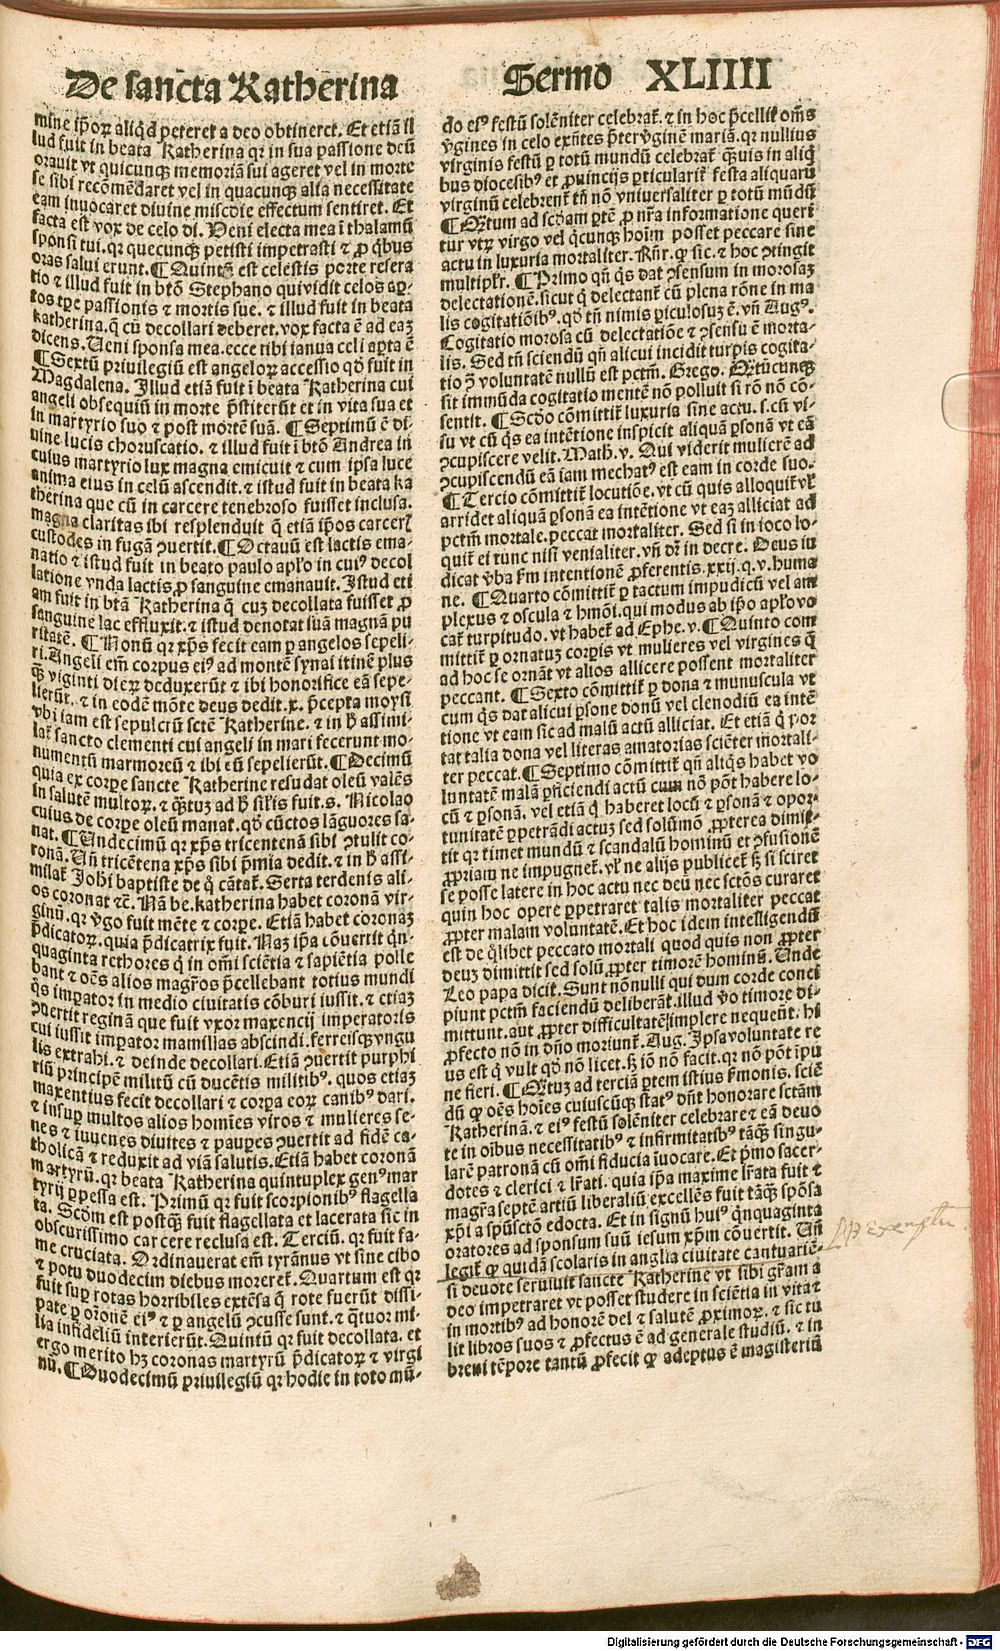 De sancta Katherina
Sermo XLIIII
mine ip̄oꝝ aliqd̄ peteret a deo obtineret. Et etiā il
lud fuit in beata Katherina qꝛ in sua passione deū
orauit vt quicunqꝫ memoriā sui ageret vel in morte
se sibi recōmēdaret vel in quacunqꝫ alia necessitate
eam inuocaret diuine miscdie effectum sentiret. Et
facta est vox de celo di. Veni electa mea ī thalamū
sponsi tui. qꝛ quecunqꝫ petisti impetrasti ⁊ ꝓ qͥbus
oras salui erunt. ¶ Quintū est celestis porte resera
tio ⁊ illud fuit in btō Stephano qui vidit celos ap̱-
tos tp̱e passionis ⁊ mortis sue. ⁊ illud fuit in beata
katherina. q̄ cū decollari deberet. vox facta ē ad eaꝫ
dicens. Veni sponsa mea. ecce tibi ianua celi aꝑta ē
¶ Sextū priuilegiū est angeloꝝ accessio qd̄ fuit in
Magdalena. Illud etiā fuit ī beata Katherina cui
angeli obsequiū in morte p̄stiterūt et in vita sua et
in martyrio suo ⁊ post mortē suā. ¶ Septimū ē di-
uine lucis choruscatio. ⁊ illud fuit ī btō Andrea in
cuius martyrio lux magna emicuit ⁊ cum ip̄sa luce
anima eius in celū ascendit. ⁊ istud fuit in beata ka
therina que cū in carcere tenebroso fuisset inclusa.
magna claritas ibi resplenduit q̄ etiā ip̄os carceꝝ
custodes in fugā ꝯuertit. ¶ Octauū est lactis ema-
natio ⁊ istud fuit in beato paulo apl̄o in cuiꝰ decol
latione vnda lactis ꝓ sanguine emanauit. Istud eti
am fuit in btā Katherina q̄ cuꝫ decollata fuisset ꝓ
sanguine lac effluxit. ⁊ istud denotat suā magnā pu
ritatē. ¶ Nonū qꝛ xp̄s fecit eam ꝑ angelos sepeli-
ri. Angeli em̄ corpus eiꝰ ad montē synai itinē plus
qꝫ viginti dieꝝ deduxerūt ⁊ ibi honorifice eā sepe-
lierūt. ⁊ in eodē mōte deus dedit .x. p̄cepta moysi
vbi iam est sepulcrū sctē Katherine. ⁊ in h̄ assimi-
lat᷑ sancto clementi cui angeli in mari fecerunt mo-
numentū marmoreū ⁊ ibi eū sepelierūt. ¶ Decimū
quia ex corꝑe sancte Katherine resudat oleū valēs
in salutē multoꝝ. ⁊ qͣtuꝫ ad h̄ sil̄is fuit .s. Nicolao
cuius de corꝑe oleū manat. qd̄ cūctos lāguores sa-
nat. ¶ Undecimū qꝛ xp̄s tricentenā sibi ꝯtulit co-
ronā. Uñ tricētena xp̄s sibi p̄mia dedit. ⁊ in h̄ assi-
milat᷑ Johi baptiste de q̊ cātat᷑. Serta terdenis ali-
os coronat ⁊c̄. Nā be. katherina habet coronā vir-
ginū. qꝛ v̄go fuit mēte ⁊ corꝑe. Etiā habet coronaꝫ
p̄dicatoꝝ. quia p̄dicatrix fuit. Naꝫ ip̄a cōuertit qͥn-
quaginta rethores q̄ in om̄i sciētia ⁊ sapiētia polle
bant ⁊ oēs alios mag̅ros p̄cellebant totius mundi
q̄s imꝑator in medio ciuitatis cōburi iussit. ⁊ etiaꝫ
ꝯuertit reginā que fuit vxor maxencij imperatoris
cui iussit imꝑator mamillas abscindi. ferreisqꝫ vngu
lis extrahi. ⁊ deinde decollari. Etiā ꝯuertit purphi
riū principē militū cū ducētis militibꝰ. quos etiaꝫ
maxentius fecit decollari ⁊ corꝑa eoꝝ canibꝰ dari.
⁊ insuꝑ multos alios homīes viros ⁊ mulieres se-
nes ⁊ iuuenes diuites ⁊ pauꝑes ꝯuertit ad fidē ca-
tholicā ⁊ reduxit ad viā salutis. Etiā habet coronā
martyrū. qꝛ beata Katherina quintuplex genꝰ mar
tyrij ꝑpessa est. Primū qꝛ fuit scorpionibꝰ flagella
ta. Scdm̄ est postqꝫ fuit flagellata et lacerata sic in
obscurissimo carcere reclusa est. Terciū. qꝛ fuit fa-
me cruciata. Ordinauerat em̄ tyrānus vt sine cibo
⁊ potu duodecim diebus moreret᷑. Quartum est qꝛ
fuit suꝑ rotas horribiles extēsa q̄ rote fuerūt dissi-
pate ꝑ orōnē eiꝰ ⁊ ꝑ angelū ꝯcusse sunt. ⁊ qͣtuor mi-
lia infideliū interierūt. Quintū qꝛ fuit decollata. et
ergo merito hꝫ coronas martyrū p̄dicatoꝝ ⁊ virgi
nū. ¶ Duodecimū priuilegiū qꝛ hodie in toto mū-
do eiꝰ festū solēniter celebrat᷑. ⁊ in hoc p̄cellit om̄s
v̄gines in celo exn̄tes p̄ter v̄ginē mariā. qꝛ nullius
virginis festū ꝑ totū mundū celebrat᷑ qͣuis in aliqͥ
bus diocesibꝰ et ꝓuincijs ꝑticularit᷑ festa aliquarū
virginū celebrent᷑ tñ nō vniuersaliter ꝑ totū mūdū
¶ Qūtum ad scd̄am ꝑtē ꝓ nr̄a informatione queri
tur vtꝝ virgo vel qͥcunqꝫ hoīm posset peccare sine
actu in luxuria mortaliter. Rn̄r. ꝙ sic. ⁊ hoc ꝯtingit
multipl̄r. ¶ Primo qn̄ qͥs dat ꝯsensum in morosaꝫ
delectationē. sicut q̄ delectant᷑ cū plena rōne in ma
lis cogitatiōibꝰ. qd̄ tn̄ nimis ꝑiculosuꝫ ē. vn̄ Augꝰ.
Cogitatio morosa cū delectatiōe ⁊ ꝯsensu ē morta-
lis. Sed tn̄ sciendū qn̄ alicui incidit turpis cogita-
tio ꝯͣ voluntatē nullū est pctm̄. Grego. Qūtūcunqꝫ
sit immūda cogitatio mentē nō polluit si rō nō cō-
sentit. ¶ Scdo cōmittit᷑ luxuria sine actu. s. cū vi-
su vt cū qͥs ea intētione inspicit aliquā ꝑsonā vt eā
ꝯcupiscere velit. Math. v. Qui viderit mulierē ad
ꝯcupiscendū eā iam mechatꝰ est eam in corde suo.
¶ Tercio cōmittit᷑ locutiōe. vt cū quis alloquit᷑ vl̄
arridet aliquā ꝑsonā ea intētione vt eaꝫ alliciat ad
pctm̄ mortale. peccat mortaliter. Sed si in ioco lo-
quit᷑ ei tunc nisi venialiter. vn̄ dr̄ in decre. Deus iu
dicat v̄ba km̄ intentionē ꝓferentis. xxij. q. v. huma
ne. ¶ Quarto cōmittit᷑ ꝑ tactum impudicū vel am
plexus ⁊ oscula ⁊ hmōi. qui modus ab ip̄o apl̄o vo
cat᷑ turpitudo. vt habet᷑ ad Ephe. v. ¶ Quinto com
mittit᷑ ꝑ ornatuꝫ corꝑis vt mulieres vel virgines q̄
ad hoc se ornāt vt alios allicere possent mortaliter
peccant. ¶ Sexto cōmittit᷑ ꝑ dona ⁊ munuscula vt
cum qͥs dat alicui ꝑsone donū vel clenodiū ea intē
tione vt eam sic ad malū actū alliciat. Et etiā q̄ por
tat talia dona vel literas amatorias sciēter mortali-
ter peccat. ¶ Septimo cōmittit᷑ qn̄ aliqͥs habet vo
luntatē malā ꝑficiendi actū cum nō pōt habere lo-
cū ⁊ ꝑsonā. vel etiā q̄ haberet locū ⁊ ꝑsonā ⁊ opor-
tunitatē ꝑpetrādi actuꝫ sed solūmō ꝓpterea dimit-
tit qꝛ timet mundū ⁊ scandalū hominū et ꝯfusionē
ꝓpriam ne impugnet᷑. vl̄ ne alijs publicet᷑ sꝫ si sciret
se posse latere in hoc actu nec deū nec sctōs curaret
quin hoc opere ꝑpetraret talis mortaliter peccat
ꝓpter malam voluntatē. Et hoc idem intelligendū
est de qͦlibet peccato mortali quod quis non ꝓpter
deuꝫ dimittit sed solū ꝓpter timorē hominū. Unde
Leo papa dicit. Sunt nōnulli qui dum corde conci
piunt pctm̄ faciendū deliberāt. illud v̄o timore di-
mittunt. aut ꝓpter difficultatē implere nequeūt. hi
ꝓfecto nō in dn̄o moriunt᷑. Aug. Ipsa voluntate re
us est q̄ vult qd̄ nō licet. sꝫ iō nō facit. qꝛ nō pōt īpu
ne fieri. ¶ Qūtuꝫ ad terciā ꝑtem istius ẜmonis. sciē
dū ꝙ oēs hoīes cuiuscūqꝫ statꝰ dn̄t honorare sctām
Katherinā. ⁊ eiꝰ festū solēniter celebrare ⁊ eā deuo
te in oībus necessitatibꝰ ⁊ infirmitatibꝰ tāqꝫ singu-
larē patronā cū om̄i fiducia īuocare. Et p̄mo sacer-
dotes ⁊ clerici ⁊ lr̄ati. quia ip̄a maxime lr̄ata fuit ⁊
magr̄a septē artiū liberaliū excellēs fuit tāqꝫ spōsa
xp̄i a sp̄usctō edocta. Et in signū huiꝰ qͥnquaginta
oratores ad sponsum suū iesum xp̄m cōuertit. Un̄
legit᷑ ꝙ quidā scolaris in anglia ciuitate cantuariē-
si deuote seruiuit sancte Katherine vt sibi gr̄am a
deo impetraret vt posset studere in sciētia in vita ⁊
in moribꝰ ad honorē dei ⁊ salutē ꝓximoꝝ. ⁊ sic tu
lit libros suos ⁊ ꝓfectus ē ad generale studiū. ⁊ in
breui tēpore tantū ꝓfecit ꝙ adeptus ē magisteriū
exemplū
Digitalisierung gefördert durch die Deutsche Forschungsgemeinschaft - DFG